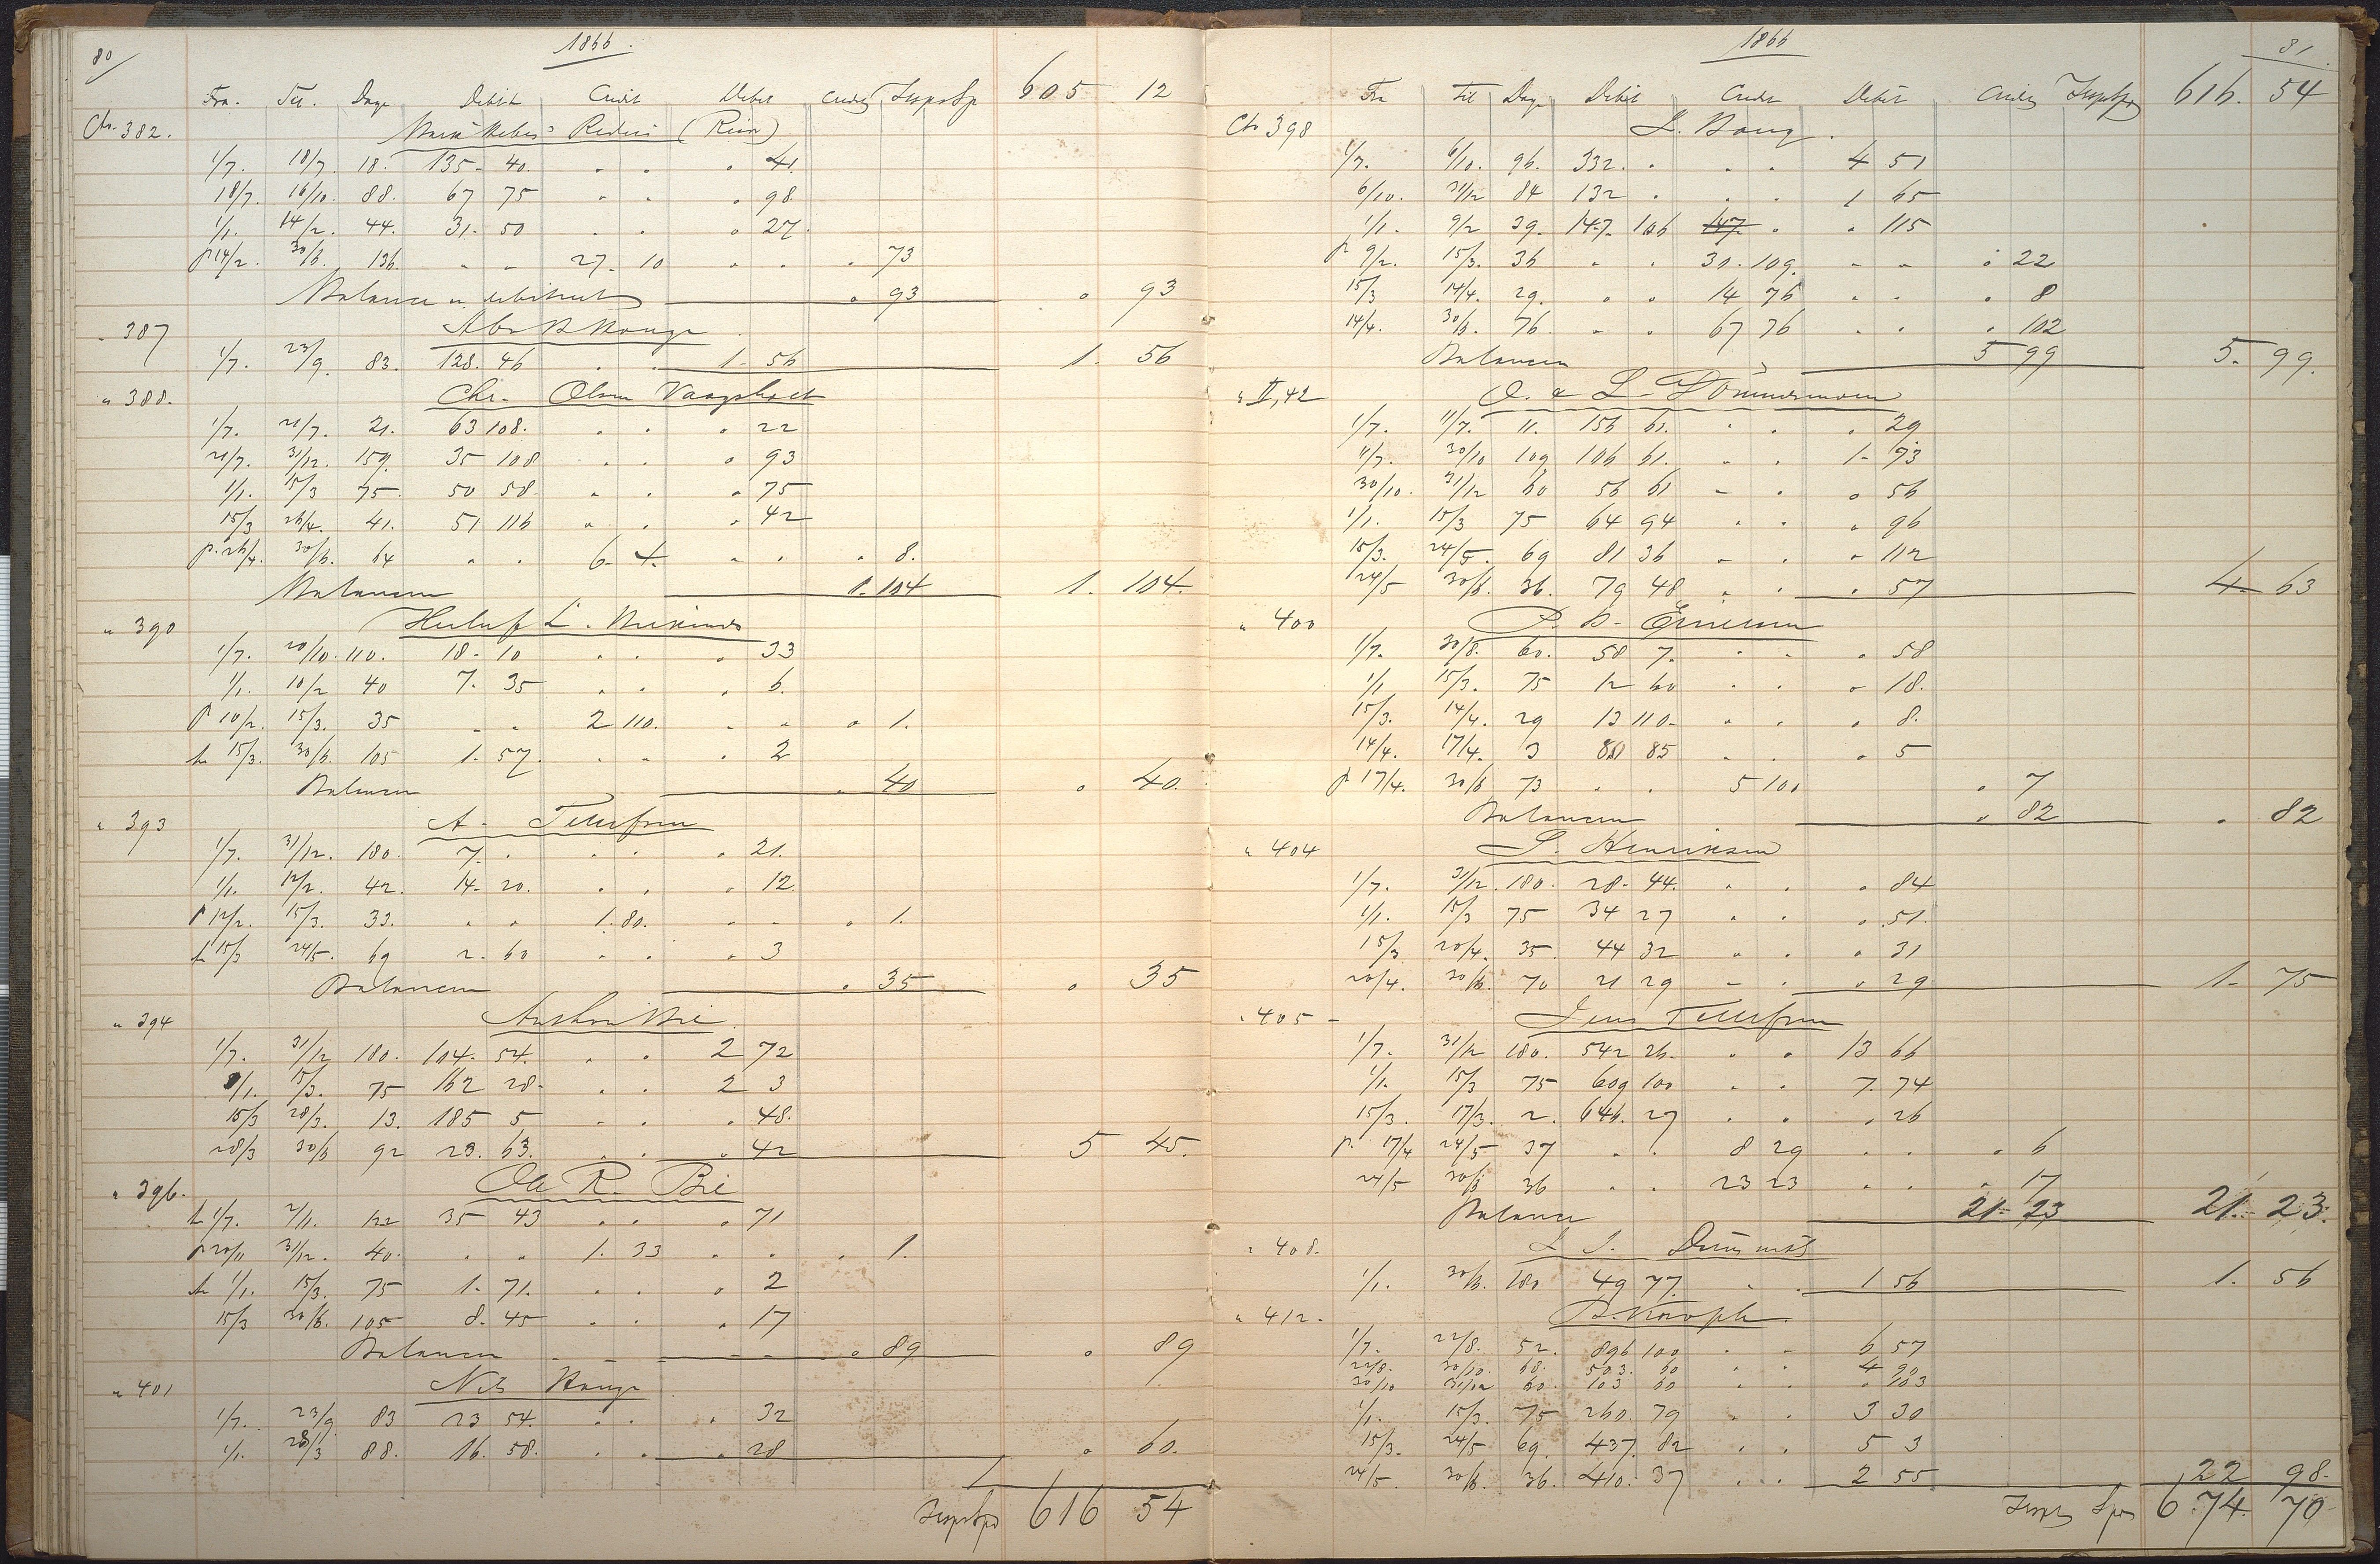 80
1866.
Fra. Til. Dage Debit Credit Debet Credit Transp Sp 605 12
Cto. 382. Rederi
1/7. 18/7. 18. 135 - 40. " " " 41.
18/7. 16/10. 88. 67 75 " " " 98.
1/1. 14/2. 44. 31 - 50 " " " 27.
p 14/2. 30/6. 136. " " 27. 10 " " " 73
Balance " 93 " 93
" 387
1/7. 23/9. 83. 128. 46 " " 1 - 56 1. 56
" 388. Chr. Olsen Vaagsholt
1/7. 21/7. 21. 63 108. " " " 22
21/7. 31/12. 159. 35 108 " " " 93
1/1. 15/3 75. 50 58. " " " 75
15/3 26/4. 41. 51 116 " " " 42
p. 26/4. 30/6. 64 " " 6 - 4. " " " 8.
Balancen 1. 104 1. 104.
" 390
1/7. 20/10. 110. 18 - 10 " " " 33
1/1. 10/2 40 7. 35 " " " 6.
p 10/2. 15/3. 35 " " 2 110. " " " 1.
15/3. 30/6. 105 1. 57. " " " 2
Balancen " 40 " 40.
" 393 A. Tellefsen
1/7. 31/12. 180. 7. " " " " 21.
1/1. 12/2. 42. 14 - 20. " " " 12.
p 12/2. 15/3. 33. " " 1. 80. " " " 1.
15/3 24/5. 69 2. 60 " " " 3
Balancen " 35 " 35
" 394
1/7. 31/12 180. 104. 54. " " 2 72
1/1. 15/3. 75 162 28. " " 2 3
15/3 28/3. 13. 185 5 " " " 48.
28/3 30/6 92 23. 63. " " " 42 5 45.
" 396. Ole R. Bie
1/7. 2/11. 122 35 43 " " " 71
p 20/11 31/12. 40. " " 1. 33 " " " 1.
1/1. 15/3. 75 1. 71. " " " 2
15/3 30/6. 105 8. 45 " " " 17
Balancen " 89 " 89
" 401 Nils Hauge
1/7. 23/9. 83 23 54. " " " 32
1/1. 28/3 88. 16. 58. " " " 28 " 60.
Transp Spd 616 54
1866 81.
Fra Til Dage Debet Credit Debet Credit Transp Spd 616. 54
Cto 398
1/7. 6/10. 96. 332. " " " 4 51
6/10. 31/12 84 132 " " " 1 65
1/1. 9/2 39. 147. 106 147. " " 115
p 9/2. 15/3. 36 " " 30. 109. " " " 22
15/3 14/4. 29. " " 14 76 " " " 8
14/4. 30/6. 76. " " 67 76 " " " 102
Balancen 5 99 5. 99.
" II, 42
1/7. 11/7. 11. 156 61. " " " 29
11/7. 30/10 109 106 61. " " 1 - 93
30/10. 31/12 60 56 61 " " " 56
1/1. 15/3 75 64 94 " " " 96
15/3. 24/5. 69 81 36 " " " 112
24/5 30/6. 36. 79 48 " " " 57 4 63
" 400
1/7. 30/8. 60. 58 7. " " " 58
1/1 15/3. 75 12 60 " " " 18.
15/3. 14/4. 29 13 110. " " " 8.
14/4. 17/4. 3 88 85 " " " 5
p 17/4. 30/6 73 " " 5 100 " 7
Balancen " 82 " 82
" 404 Henriksen
1/7. 31/12. 180. 28. 44. " " " 84
1/1. 15/3 75 34 27 " " " 51.
15/3 20/4. 35. 44 32 " " " 31
20/4. 30/6. 70 21 29 " " " 29 1. 75
" 405 Jens Tellefsen
1/7. 31/12 180. 542 26. " " 13 66
1/1. 15/3 75 609 100 " " 7. 74
15/3. 17/3. 2. 646. 27 " " " 26
p. 17/4 24/5 37 " " 8 29 " " " 6
24/5 30/6 36 " " 23 23 " " " 17
Balance 21 - 23 21. 23.
" 408.
1/1. 30/6. 180 49 77. " " 1 56 1. 56
" 412.
1/7. 22/8. 52. 896 100 " " 6 57
22/8. 30/10. 68. 503. 60 " " 4 90
30/10 31/12 60. 103 60 " " " 103
1/1. 15/3. 75 260. 79 " " 3 30
15/3. 24/5 69. 437. 82 " " 5 3
24/5. 30/6. 36. 410. 37 " " 2 55 22 98.
Transp Spd 674. 70